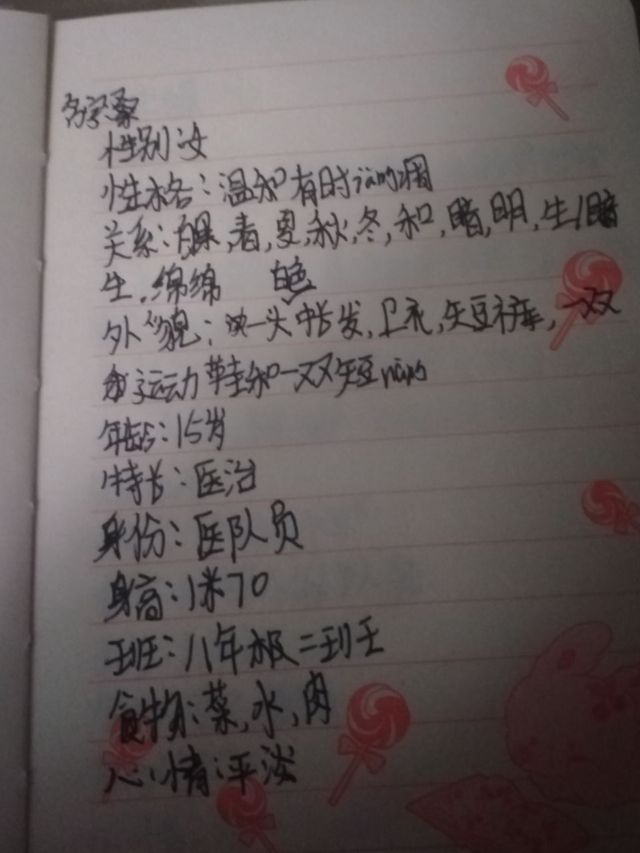 名字
性别:女
性格:温和有时
关系:,春,夏,秋,冬,和,暗,明,生/暗
生.绵绵 白色
外貌:一头中长发,卫衣,矢豆裤,一双
子运动鞋和一双矢豆
年龄:15岁
特长:医治
身份:医队员
身高:1米70
班:八年级二班
食物:菜,水,肉
心情:平淡